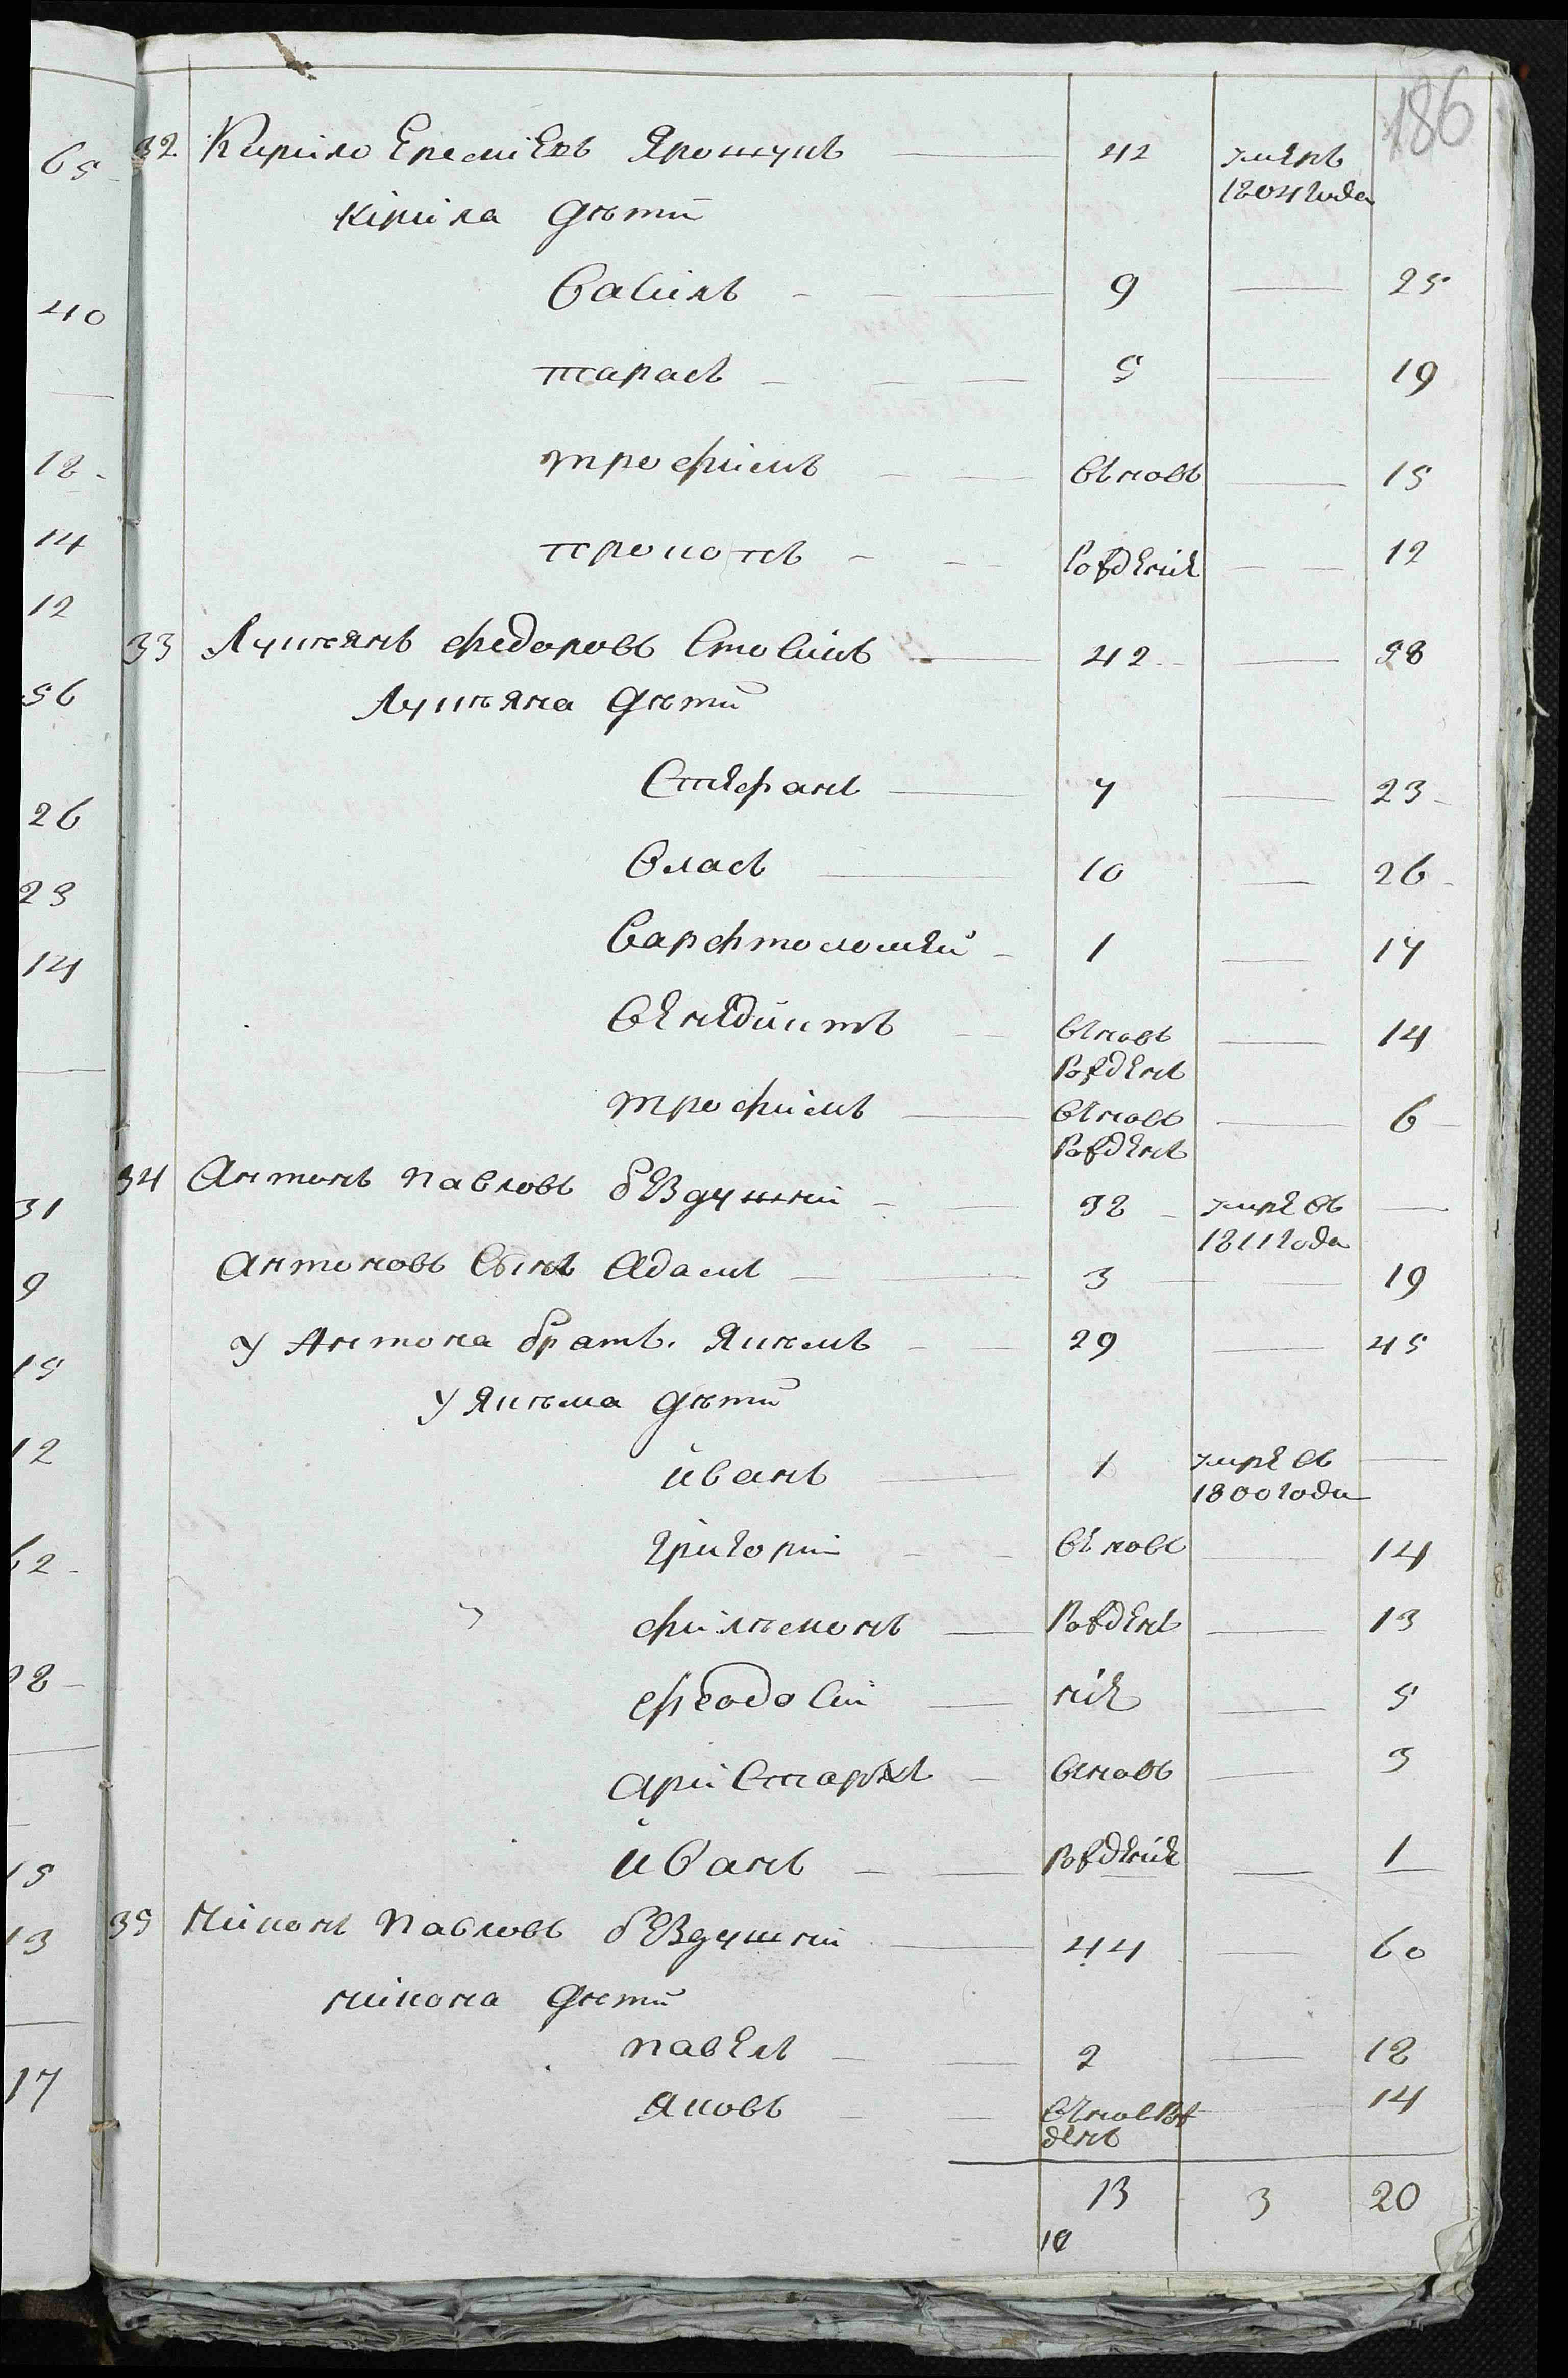 65
40
18
14
12
56
26
23
14
31
9
15
12
62
28
15
13
17
186
32 Кирило Еремѣевъ Ярошукъ 42 умеръ
1804 года
Кирила дѣти
Василь 9 25
тарасъ 5 19
трофимъ вьновь 15
прокопъ рожденіе 12
33 Лукьянъ федоровъ Стовикъ 42 58
Лукьяна дѣти
Стефанъ 7 23
власъ 10 26
варфтоломей 1 17
венедиктъ вновь 14
рожденъ
трофимъ вновь 6
рожденъ
34 Антонъ павловъ бездушній 32 умре въ
1811 года
антоновъ сынъ адамъ 3 19
у Антона братъ. Якимъ 29 45
у Якима дѣти
иванъ 1 умре въ
1800 года
григорій вновь 14
фильмонъ рожден 13
феодосій ніе 5
аристархъ вновь 3
иванъ рожденіе 1
35 Никонъ павловъ бездушній 44 60
никона дѣти
павелъ 2 18
яковъ вновь рож 14
денъ
13 3 20
10